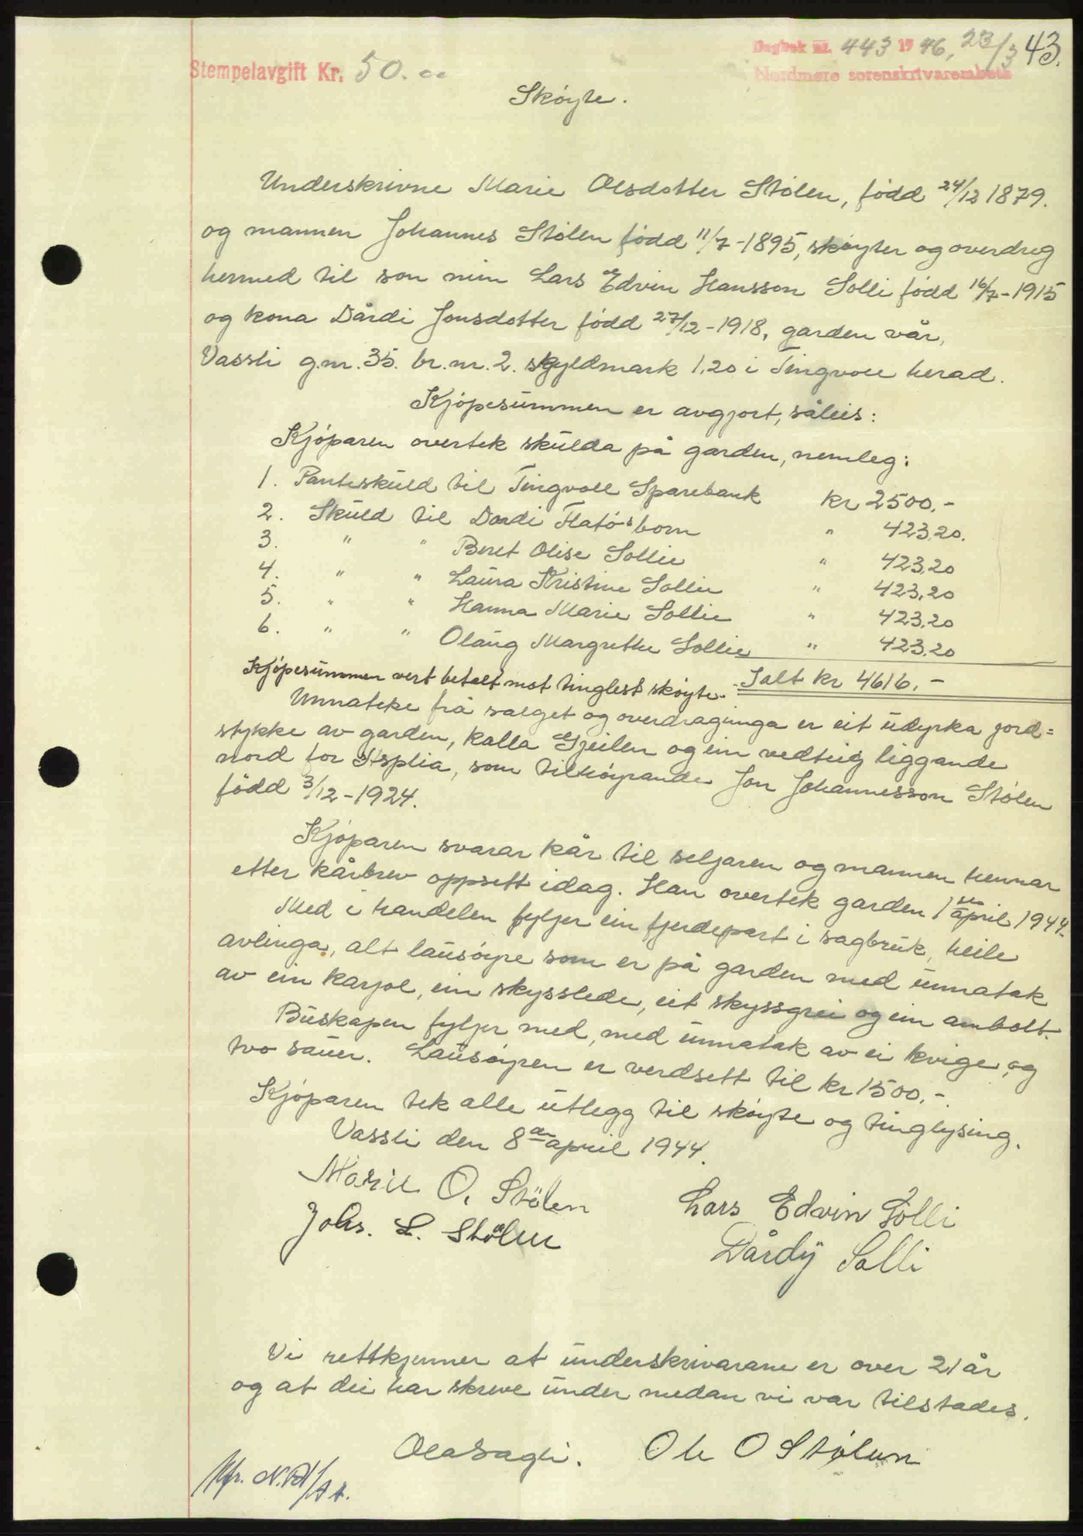 Dagbok nr. 443 1946, 23/3 43.
Nordmøre sorenskrivarembete
Stempelavgift Kr. 50.00
Skøyte.
Underskrivne Marie Olsdotter Stølen, fødd 24/12 1879.
og mannen Johannes Stølen fødd 11/7-1895, skøyter og overdreg
hermed til son min Lars Edvin Hansson Solli fødd 16/7-1915
og kona Dårdi Jonsdotter fødd 27/12-1918, garden vår,
Vassli g.nr. 35. br.nr. 2. skyldmark 1,20 i Tingvoll herad.
Kjøpesummen er avgjort, såleis:
Kjøparen overtek skulda på garden, nemleg:
1. Panteskuld til Tingvoll Sparebank kr 2500,-
2. Skuld til Dordi Flatø's born " 423,20.
3. " " Beret Olise Sollie " 423,20
4. " " Laura Kristine Sollie " 423,20
5. " " Hanna Marie Sollie " 423,20
6. " " Olaug Margrethe Sollie " 423,20
Kjøpesummen vert betalt mot tinglest skøyte. Ialt kr 4616,-
Unnateke frå salget og overdraginga er eit udyrka jord=
stykke av garden, kalla Gjeilen og ein vedteig liggande
nord for Asplia, som tilhøyrande Jon Johannesson Stølen
fødd 3/12-1924.
Kjøparen svarar kår til seljaren og mannen hennar
etter kårbrev oppsett idag. Han overtek garden 1ste april 1944.
Med i handelen fylgjer ein fjerdepart i sagbruk, heile
avlinga, alt lausøyre som er på garden med unnatak
av ein karjol, ein skysslede, eit skyssgrei og ein ambolt.
Buskapen fylgjer med, med unnatak av ei kvige og
tvo sauer. Lausøyren er verdsett til kr 1500,-.
Kjøparen tek alle utlegg til skøyte og tinglysing.
Vassli den 8de april 1944.
Marie O. Stölen Lars Edvin Solli
Johs. L. Stølen Dårdy Solli
Vi rettkjenner at underskrivarane er over 21 år
og at dei har skreve under medan vi var tilstades.
Ola Sagli. Ole O Stølen